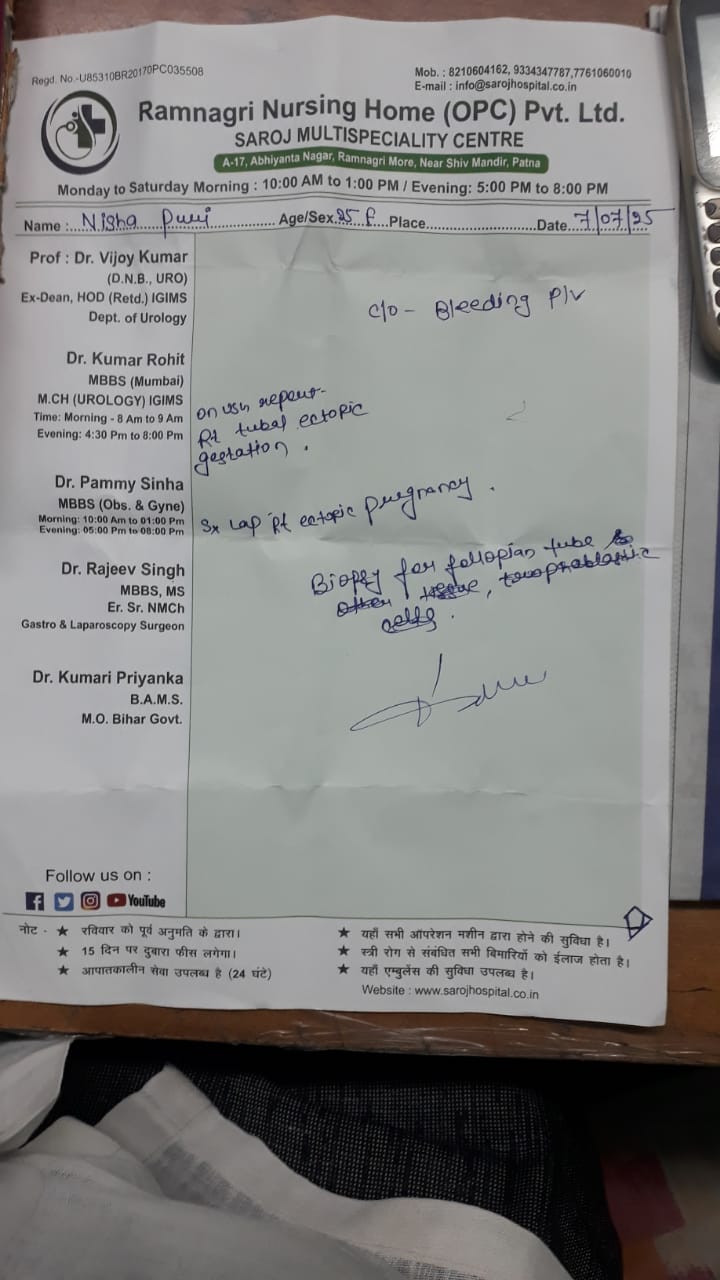 Regd. No.-U85310BR20170PC035508
Mob. : 8210604162, 9334347787,7761060010
E-mail : info@sarojhospital.co.in
Ramnagri Nursing Home (OPC) Pvt. Ltd.
SAROJ MULTISPECIALITY CENTRE
A-17, Abhiyanta Nagar, Ramnagri More, Near Shiv Mandir, Patna
Monday to Saturday Morning : 10:00 AM to 1:00 PM / Evening: 5:00 PM to 8:00 PM
Name :.... Nisha ............... Age/Sex. 25 f....Place............................Date... 7/07/25
Prof : Dr. Vijoy Kumar
(D.N.B., URO)
Ex-Dean, HOD (Retd.) IGIMS
Dept. of Urology
Dr. Kumar Rohit
MBBS (Mumbai)
M.CH (UROLOGY) IGIMS
Time: Morning - 8 Am to 9 Am
Evening: 4:30 Pm to 8:00 Pm
Dr. Pammy Sinha
MBBS (Obs. & Gyne)
Morning: 10:00 Am to 01:00 Pm
Evening: 05:00 Pm to 08:00 Pm
Dr. Rajeev Singh
MBBS, MS
Er. Sr. NMCh
Gastro & Laparoscopy Surgeon
Dr. Kumari Priyanka
B.A.M.S.
M.O. Bihar Govt.
c/o - Bleeding P/v
on usn
Rt tubal ectopic
gestation .
Sx Lap Rt ectopic pregnancy .
Biopsy for fallopian tube
Follow us on :
YouTube
नोट - ★ रविवार को पूर्व अनुमति के द्वारा।
★ 15 दिन पर दुबारा फीस लगेगा।
★ आपातकालीन सेवा उपलब्ध है (24 घंटे)
★ यहाँ सभी ऑपरेशन मशीन द्वारा होने की सुविधा है।
★ स्त्री रोग से संबंधित सभी बिमारियों को ईलाज होता है।
★ यहाँ एम्बुलेंस की सुविधा उपलब्ध है।
Website : www.sarojhospital.co.in